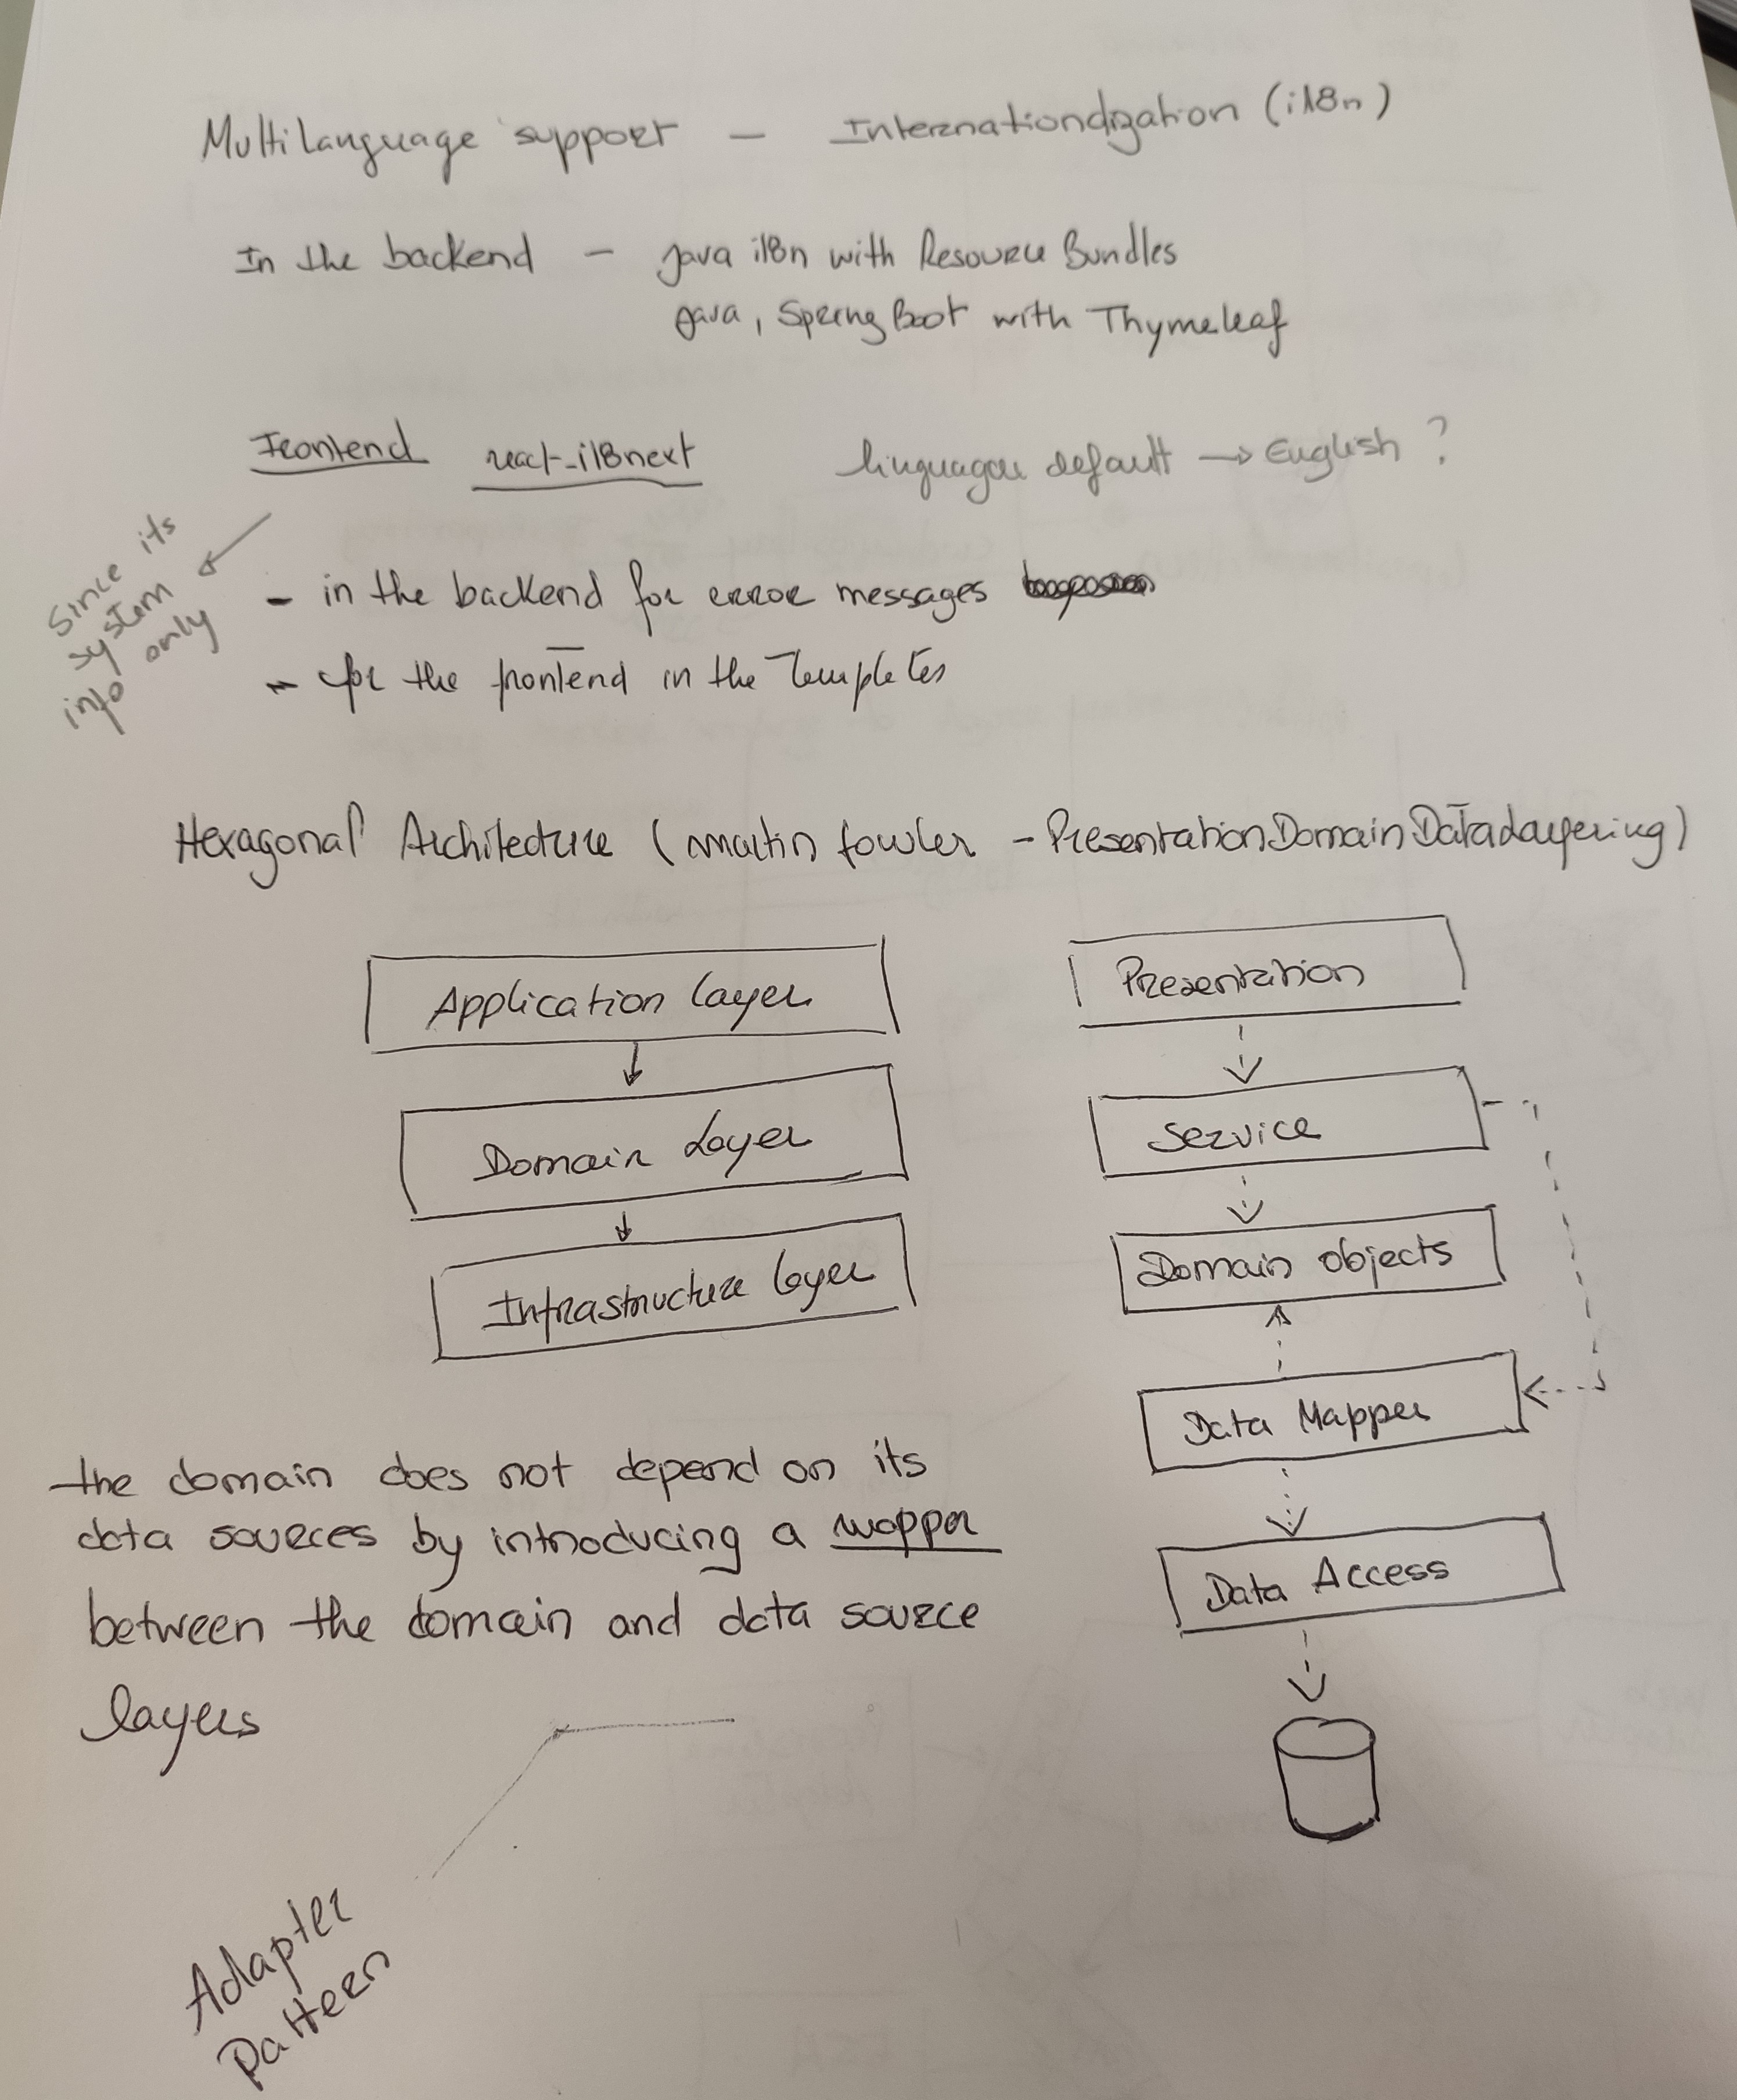 MultiLanguage support — Internationalization (i18n)
In the backend — Java i18n with Resource Bundles
Java, Spring Boot with Thymeleaf
Frontend react-i18next linguagou default → English ?
Since its
system
info only
- in the backend for error messages
- for the frontend in the Templates
Hexagonal Architecture (martin fowler - PresentationDomainDataLayering)
Application Layer
Domain Layer
Infrastructure Layer
Presentation
Service
Domain objects
Data Mapper
Data Access
the domain does not depend on its
data sources by introducing a mapper
between the domain and data source
layers
Adapter
Pattern